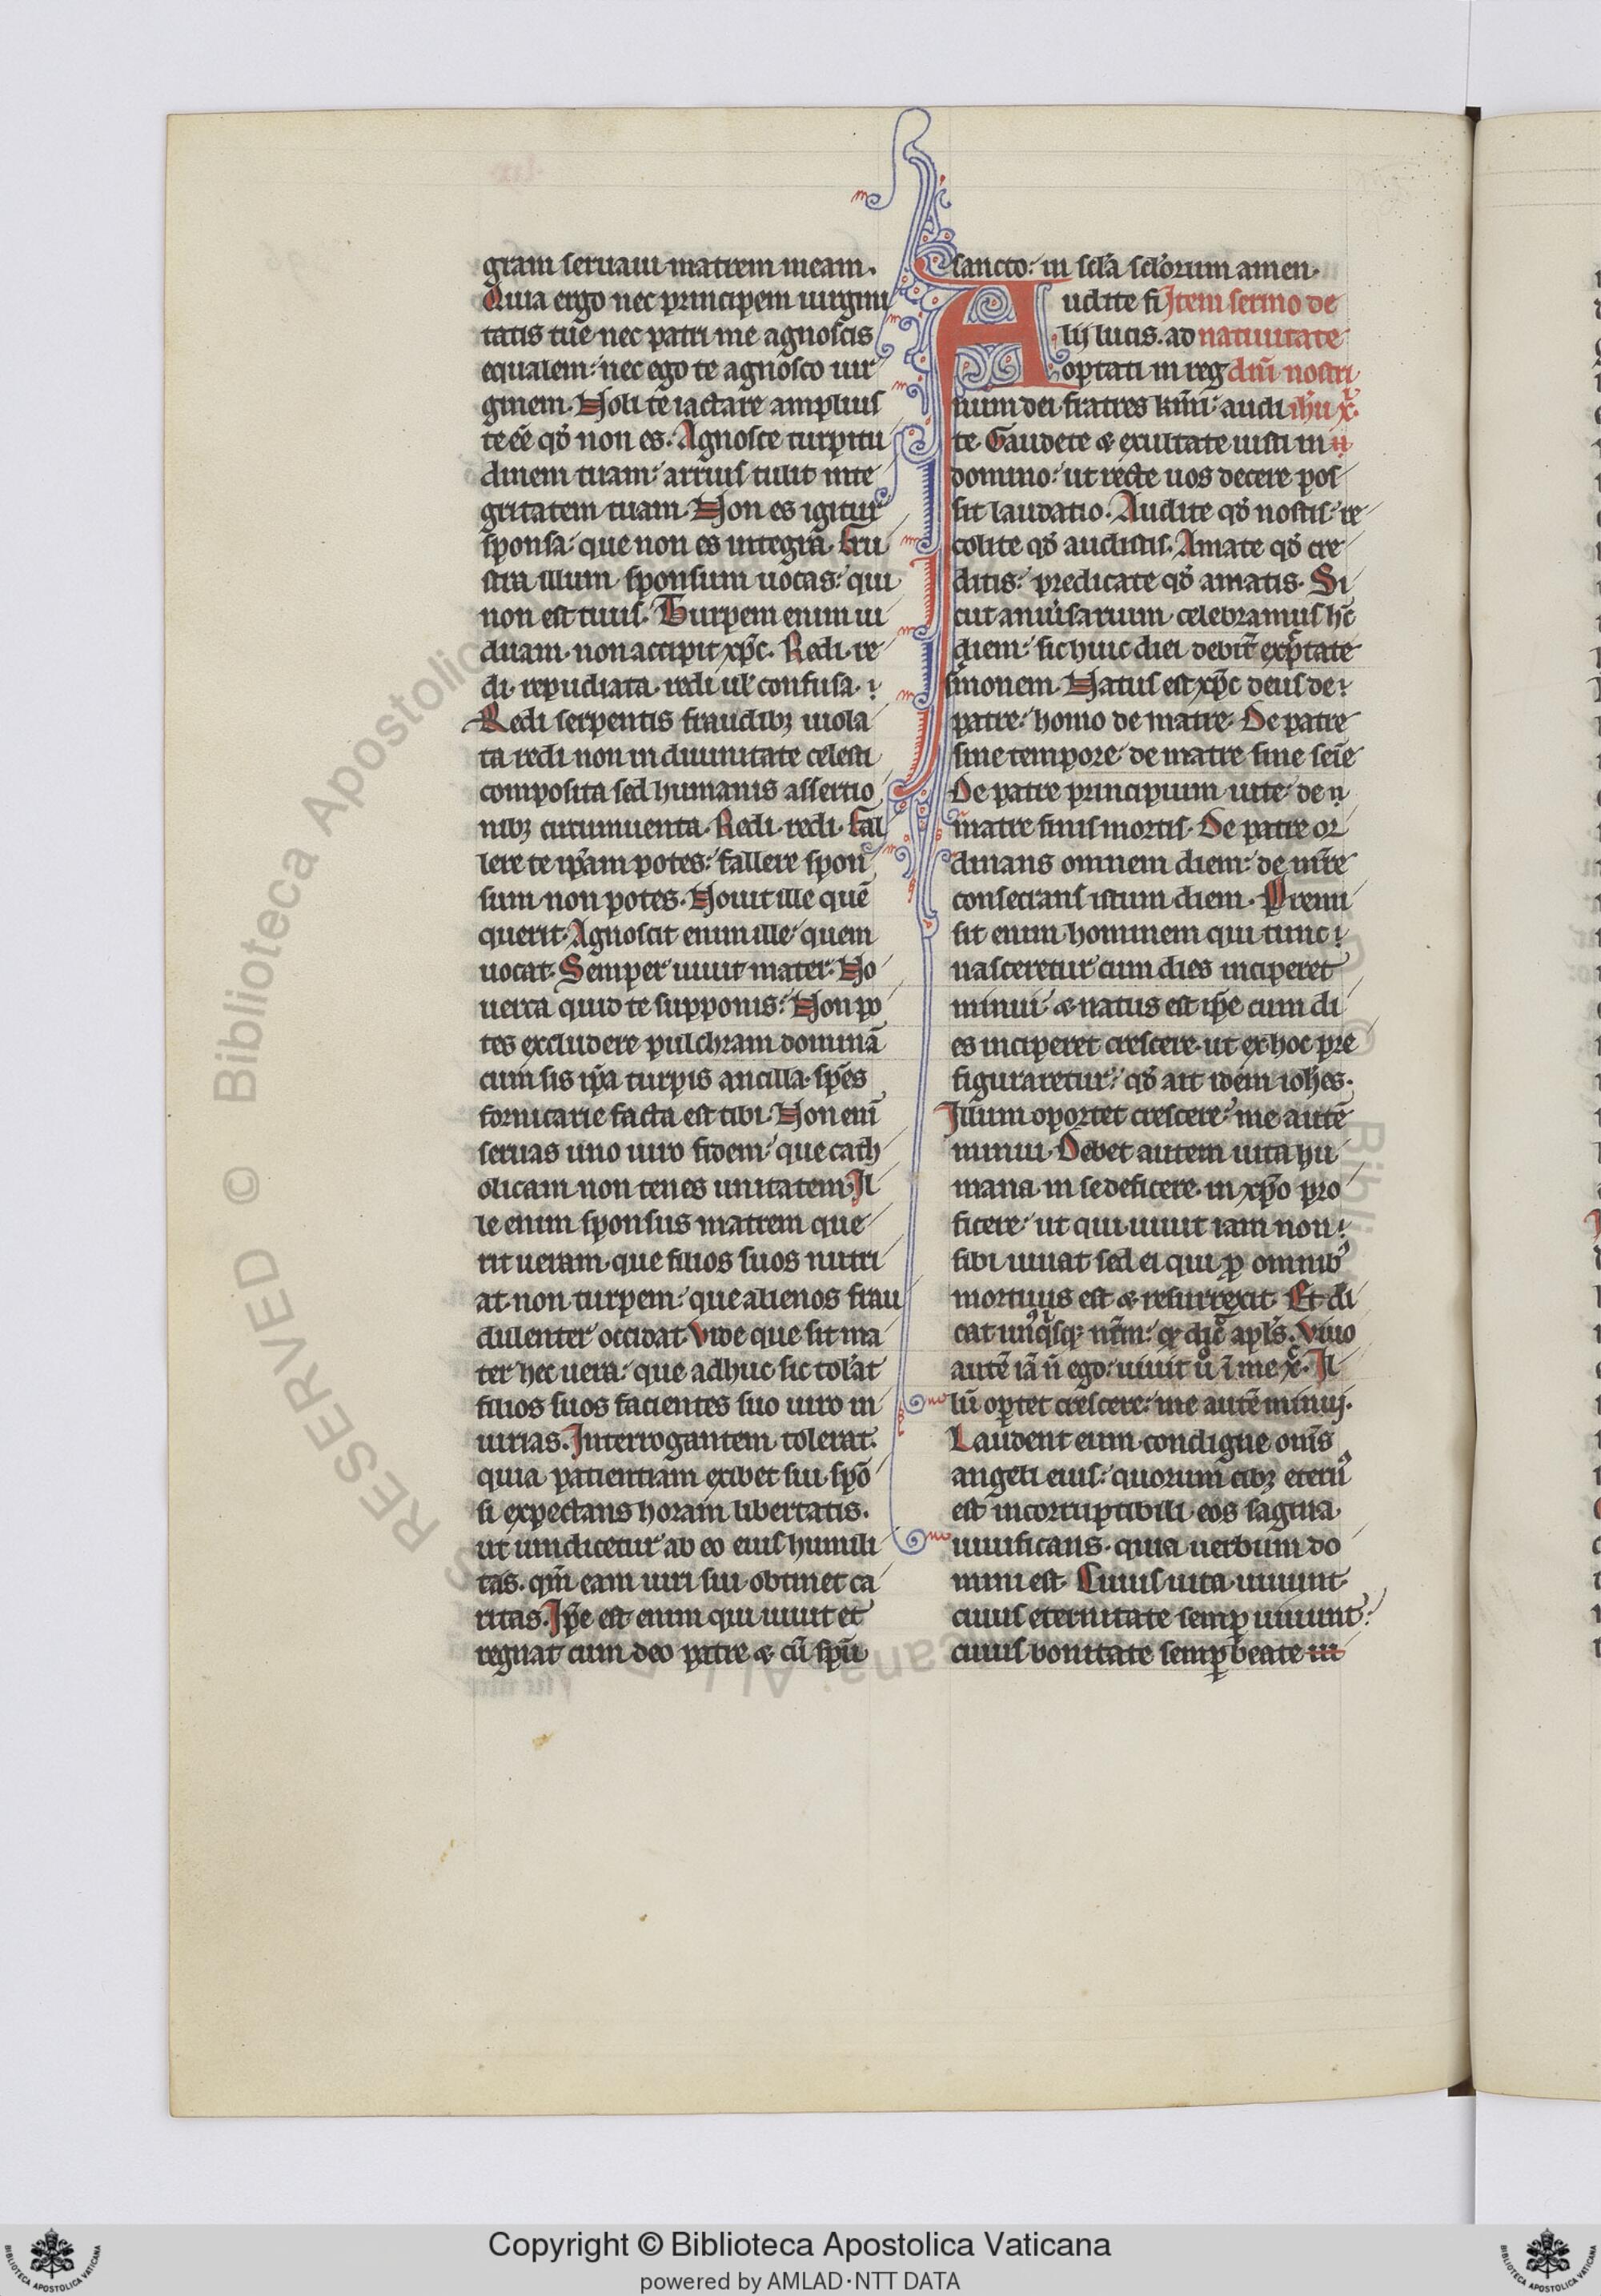 gram seruaui matrem meam.
Quia ergo nec principem uirgini
tatis tue nec patri me agnoscis
equalem: nec ego te agnosco uir
ginem. Noli te iactare amplius
te eē qđ non es. Agnosce turpitu
dinem tuam: arrius tulit inte
gritatem tuam. Non es igitur
sponsa: que non es integra. Fru
stra illum sponsum uocas: qui
non est tuus. Turpem enim ui
duam. non accipit xp̄c. Redi. re
di. repudiata. redi ul' confusa.
Redi serpentis fraudibꝫ uiola
ta redi non in diuinitate celesti
composita sed humanis assertio
nibꝫ circumuenta. Redi. redi. Fal
lere te ip̄am potes: fallere spon
sum non potes. Nouit ille quē
querit. Agnoscit enim ille quem
uocat. Semper uiuit mater. No
uerca quid te supponis: Non po
tes excludere pulchram dominā
cum sis ip̄a turpis ancilla. sp̄es
fornicarie facta est tibi. Non eni
seruas uno uiro fidem: que cath
olicam non tenes unitatem. Il
le enim sponsus matrem que
rit ueram. que filios suos nutri
at. non turpem: que alienos frau
dulenter occidat. Vide que sit ma
ter hec uera: que adhuc sic tol'at
filios suos facientes suo uiro in
iurias. Interrogantem tolerat.
quia patientiam exibet sui spō
si expectans horam libertatis.
ut uindicetur ab eo eius humili
tas. qm̄ eam uiri sui obtinet ca
ritas. Ip̄e est enim qui uiuit et
regnat cum deo patre & cū spū
sancto: in sc̄la sc̄lorum amen.
udite fi Item sermo de
lij lucis. ad natiuitate
optati in reg dn̄i nostri
num dei fratres km̄i: audi ih̄u x̄.
te. Gaudete & exultate iusti in
domino: ut recte uos decere pos
sit laudatio. Audite qđ nostis: re
colite qđ audistis. Amate qđ cre
ditis: predicate qđ amatis. Si
cut aniu'sarium celebramus hc̄
diem: sic huic diei debit̄ exp̄ctate
s'monem. Natus est xp̄c deus de
patre: homo de matre. De patre
sine tempore de matre sine seīe
De patre principium uite de
matre finis mortis. De patre or
dinans omnem diem: de mr̄e
consecrans istum diem. Premi
sit enim hominem qui tunc
nasceretur cum dies inciperet
minui: & natus est ip̄e cum di
es inciperet crescere. ut ex hoc pre
figuraretur: qđ ait idem ioh̄es.
Illum oportet crescere: me autē
minui. Debet autem uita hu
mana in se deficere. in xp̄o pro
ficere: ut qui uiuit iam non
sibi uiuat sed ei qui ꝓ omnibꝰ
mortuus est & resurrexit. Et di
cat unꝰqisqꝫ nr̄m: qđ dic̄ apl's. Viuo
autē iā n̄ ego: uiuit u̇ ī me x̄c. Il
lū oꝑtet crescere: me autē minui.
Laudent eum condigne om̄s
angeli eius: quorum cibꝫ eternꝰ
est incorruptibili eos sagina
uiuificans. quia uerbum do
mini est. Cuius uita uiuunt
cuius eternitate semꝑ uiuunt:
cuius bonitate semꝑ beate